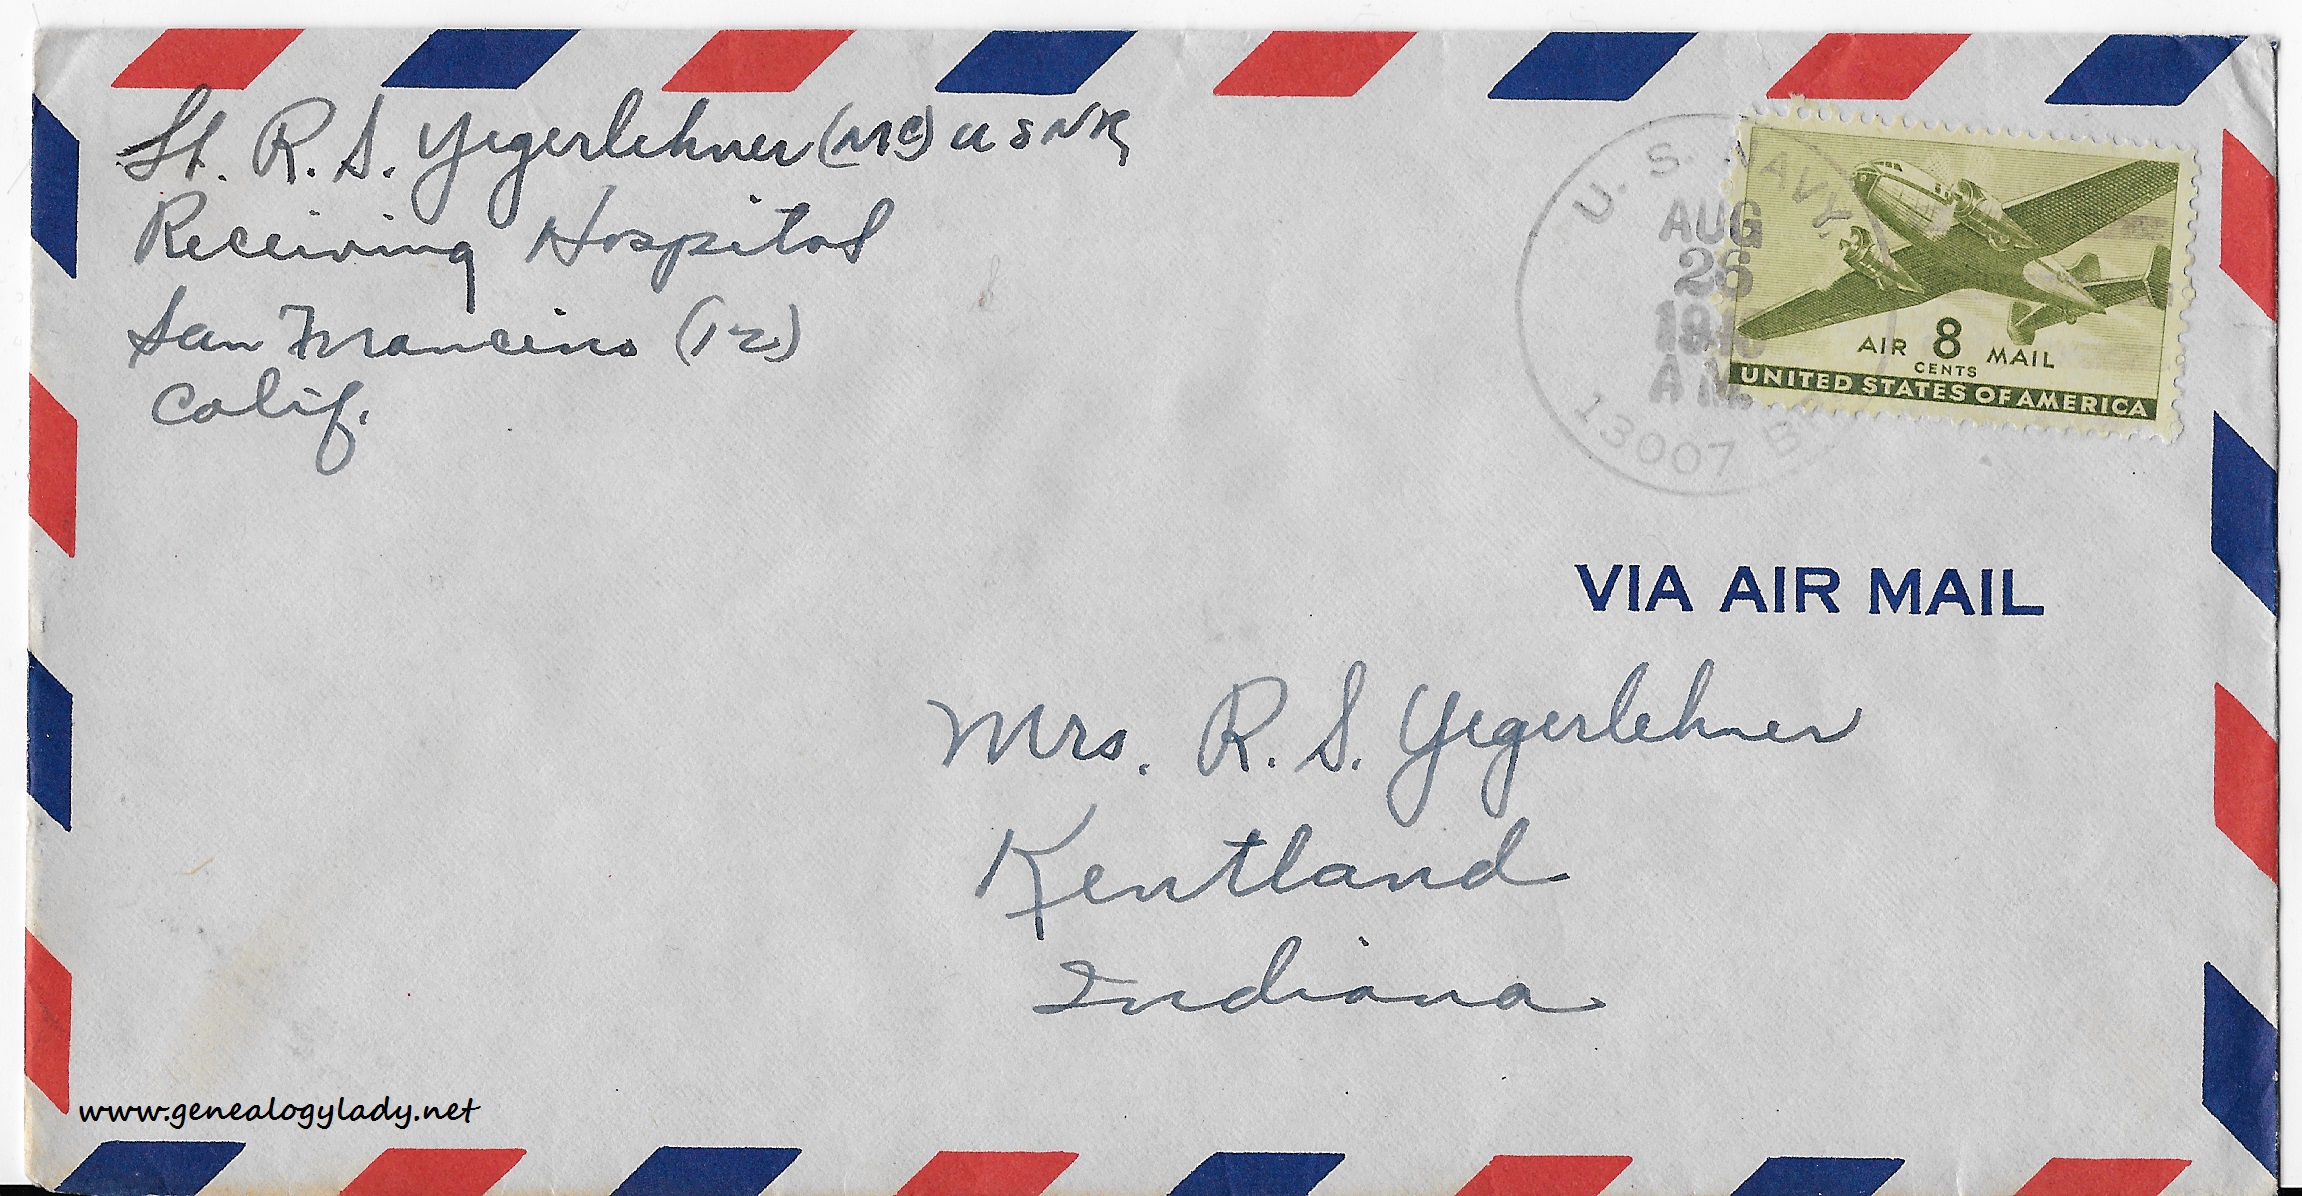 Lt. R. S. Yegerlehner (MC) USNR
Receiving Hospital
San Francisco (12)
Calif.
U. S. NAVY
AUG
26
A M.
13007
AIR 8 MAIL
CENTS
UNITED STATES OF AMERICA
VIA AIR MAIL
Mrs. R. S. Yegerlehner
Kentland
Indiana
www.genealogylady.net